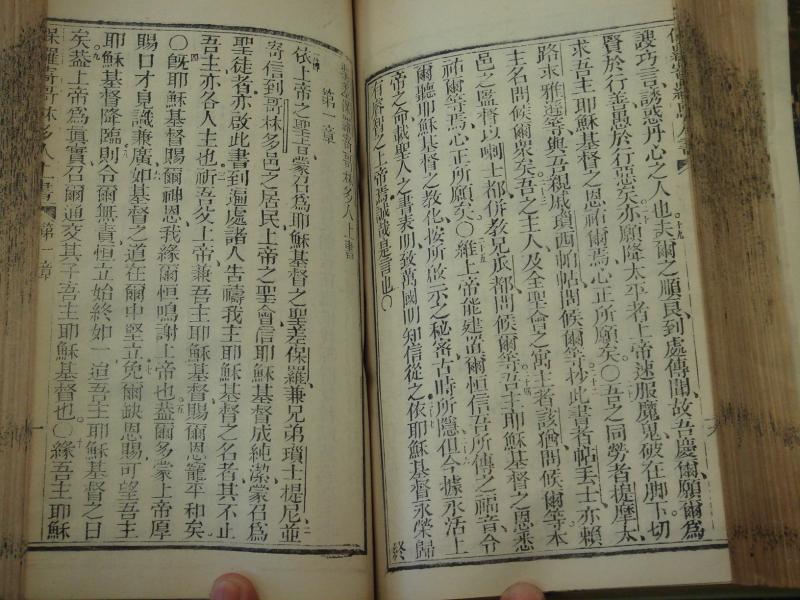 謏巧言、誘惑丹心之人也夫爾之順良、到處傳聞、故吾慶爾、願爾爲
賢於行善、愚於行惡矣亦願降太平者上帝速服魔鬼、破在脚下切
求吾主耶穌基督之恩祐爾焉心正所願矣〇吾之同勞者提摩太、
路求雅遜等與吾親戚瑣西帖帖問候爾等抄此書者帖丟士亦賴
主名問候爾衆矣吾之主人及全聖會之寓主者該猶問候爾等本
邑之監督以喇士都併教兄瓜都問候爾等吾主耶穌基督之恩悉
祐爾等焉心正所願矣〇維上帝能建置爾恒信吾所傳之福音令
爾聽耶穌基督之教化按所啟示之秘密古時所隱俱今據永活上
帝之命載聖人之書表明致萬國明知信從之依耶穌基督永榮歸
有睿智之上帝焉誠哉是言也〇
終
寄哥林多人上書
第一章
依上帝之聖旨蒙召爲耶穌基督之聖差保羅兼兄弟瑣士提尼亞
寄信到哥林多邑之居民上帝之聖會信耶穌基督成純潔蒙召爲
聖徒者亦啟此書到遍處諸人吿禱我主耶穌基督之名者其不止
吾主亦各人主也祈吾父上帝兼吾主耶穌基督賜爾恩寵平和矣
〇旣耶穌基督賜爾神恩我緣爾恒鳴謝上帝也葢爾多蒙上帝厚
賜口才見識兼廣如基督之道在爾中堅立免爾缺恩賜可望吾主
耶穌基督降臨則令爾無責恒立始終如一迨吾主耶穌基督之日
矣葢上帝爲眞實召爾通交其子吾主耶穌基督也〇緣吾主耶穌
保羅寄哥林多人上書
第一章